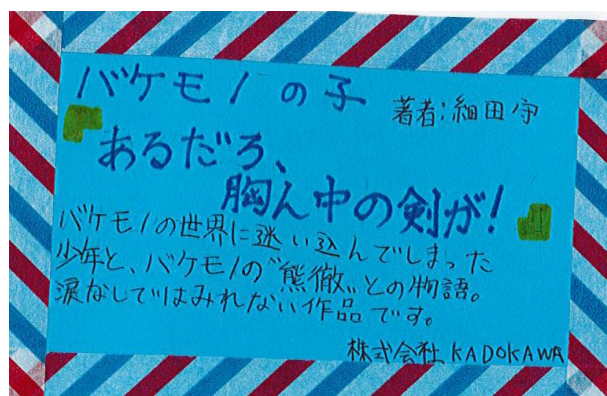 バケモノの子
著者:細田守
『あるだろ、
胸ん中の剣が!』
バケモノの世界に迷い込んでしまった
少年と、バケモノの"熊徹"との物語。
涙なしではみれない作品です。
株式会社 KADOKAWA